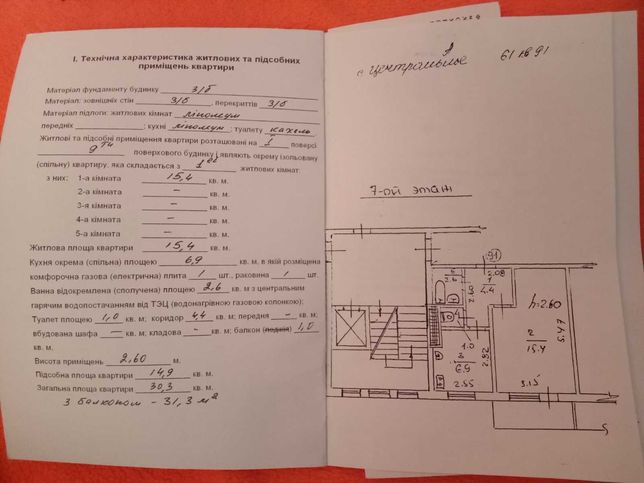 I. Технічна характеристика житлових та підсобних
приміщень квартири
Матеріал фундаменту будинку з/б
Матеріал: зовнішніх стін з/б, перекриттів з/б
Матеріал підлоги: житлових кімнат лінолеум
передніх ; кухні лінолеум; туалету кахель
Житлові та підсобні приміщення квартири розташовані на поверсі
9ти поверхового будинку і являють окрему ізольовану
(спільну) квартиру, яка складається з 1ої житлових кімнат:
з них: 1-а кімната 15,4 кв. м.
2-а кімната – кв. м.
3-я кімната – кв. м.
4-а кімната – кв. м.
5-а кімната – кв. м.
Житлова площа квартири 15,4 кв. м.
Кухня окрема (спільна) площею 6,9 кв. м, в якій розміщена
комфорочна газова (електрична) плита 1 шт., раковина 1 шт.
Ванна відокремлена (сполучена) площею 2,6 кв. м з центральним
гарячим водопостачанням від ТЭЦ (водонагрівною газовою колонкою);
Туалет площею 1,0 кв. м; коридор 4,4 кв. м; передня – кв. м;
вбудована шафа – кв. м; кладова – кв. м; балкон (лоджия) 1,0
кв. м.
Висота приміщень 2,60 м.
Підсобна площа квартири 14,9 кв. м.
Загальна площа квартири 30,3 кв. м.
З балконом – 31,3 м²
Центральное 61 кв 91
7-ой этаж
91
1
4.4
2.60
h-2.60
2
15.4
5.47
3.15
1.0
3
6.9
2.92
2.35